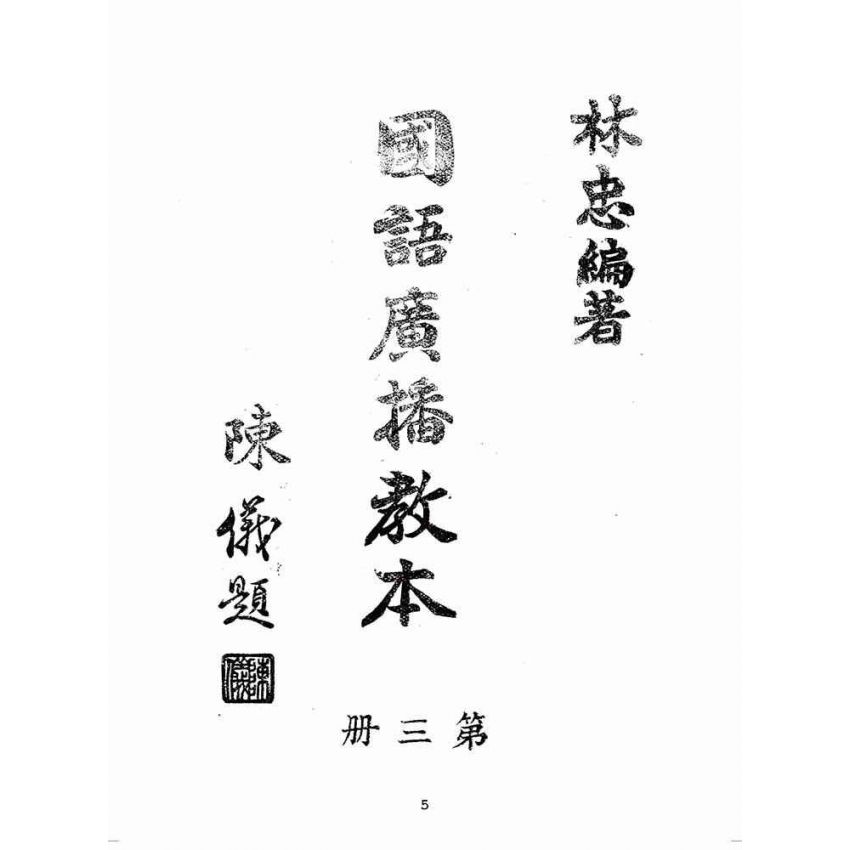 林忠編著
國語廣播教本
陳儀題
陳儀
第三冊
5